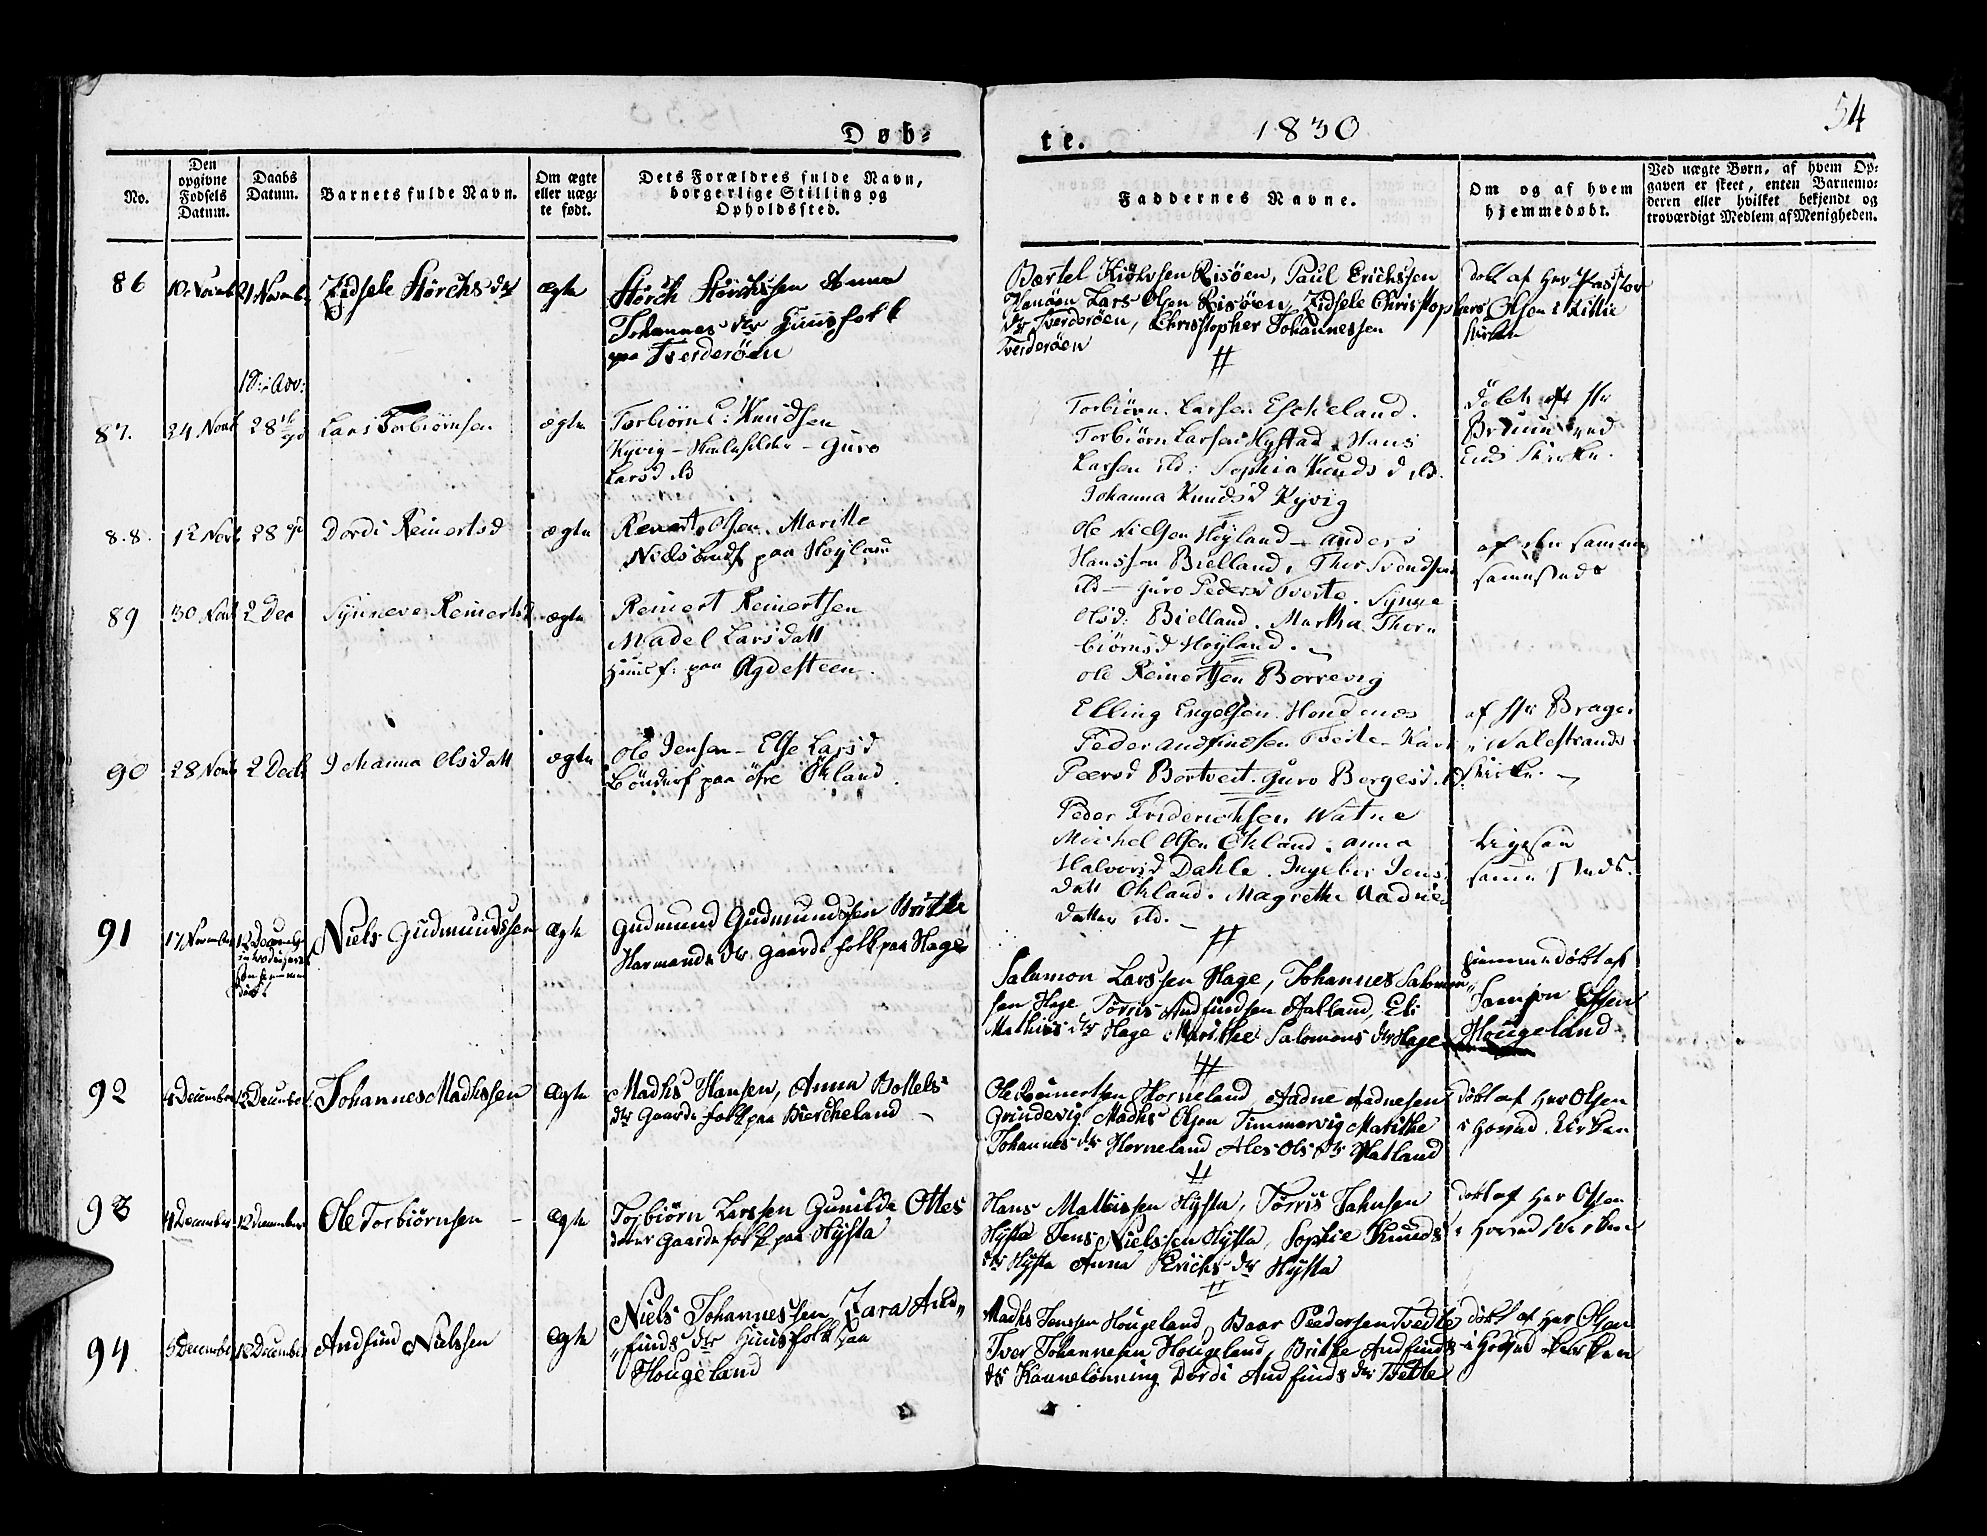 54
Døb=
te.
1830
No.
Den
opgivne
Fødsels
Datum.
Daabs
Datum.
Barnets fulde Navn.
Om ægte
eller uæg-
te født.
Dets Forældres fulde Navn,
borgerlige Stilling og
Opholdssted.
Faddernes Navne.
Om og af hvem
hjemmedøbt.
Ved uægte Børn, af hvem Op-
gaven er skeet, enten Barnemo-
deren eller hvilket bekjendt og
troværdigt Medlem af Menigheden.
86
10. Novmb
21 Novmb
Zidsele Størchs dtr
ægte
Størch Størchssen Anna
Johannes dtr Huusfolk
paa Tverderöen
Bertel Kiölvsen Risöen, Paul Erichssen
Hanöen Lars Olsen Risöen, Zidsele Christophers
dtr Tverderöen, Christopher Johannessen
Tverderöen
döbt af Her Pastor
Olsen i
Kirke
1 S: i Adv:
87.
24 Novb
28
Lars Torbiörnsen
ægte
Torbiörn Knudsen
Kyvig – Guro
Larsd
Torbiörn Larsen Eskeland.
Torbiörn Larsen Hystad, Hans
Larsen ibd: Sophia Knuds d ib.
Johanna Knudsd Kyvig
Döbt af Hr
Bruun ved
Eids Kirke.
88.
12 Novb
28
Dordi Reinertsd
ægte
Reinert Olsen. Maritte
Nielsd paa Höyland
Ole Nielsen Höyland – Anders
Hanssen Bielland, Thor Svendsen
ibd – Guro Pedersd Tveite. Synne
Olsd: Bielland. Martha Thor
biörnsd Höyland.
af den samme
sammesteds
89
30 Novb
2 Dec
Synneve Reinertsd
ægte
Reinert Reinertsen
Madel Larsdatt
Huusf: paa Agdesteen.
Ole Reinertsen Borrevig
Elling Engelsen
Peder Andfindsen Tveite – Kari
Peersd Bortveit. Guro Borgesd. ib.
af Hr Brager
i Walestrands
Kirke.
90
28 Novb
2 Decb
Johanna Olsdatt
ægte
Ole Jensen – Else Larsd
Böndesf paa öfre Ökland.
Peder Friderichsen Watne
Michel Olsen Ökland. Anna
Halvorsd Dahle. Ingebor Jens
datt Ökland. Magrethe Aadnes
datter ibd.
Ligesaa
sammesteds.
91
17 November
12 December
Niels Gudmundssen
Ægte
Gudmund Gudmundssen Brithe
Harmands dtr Gaardsfolk paa Hage
Salamon Larssen Hage, Johannes Salomon
sen Hage, Törris Andfindsen Aatland, Eli
Mathiis dtr Hage Marithe Salomons dtr Hage
hjemmedöbt af
Samson Olsen
Hougeland
92
4 December
12 December
Johannes Madhssen
Ægte
Madhs Hansen, Anna Bottels
dtr Gaardsfolk paa Bierkeland
Ole Reinertsen Horneland, Aadne Aadnesen
Grindevig Madhs Olsen Timmervig Marithe
Johannes dtr Horneland Ales Ols dtr Hatland
döbt af Her Olsen
i Hovud Kirken
93
4 December
12 December
Ole Torbiörnsen
Ægte
Torbiörn Larssen Gunilda Ottes
datter Gaardsfolk paa Hÿsta
Hans Mathissen Hÿsta, Törris Jahnsen
Hÿsta Jens Nielssen Hÿsta, Sophie Knuds
dtr Hÿsta Anna Erichs dtr Hÿsta
döbt af Her Olsen
i Hovud Kirken
94
5 December
12 December
Andfind Nielssen
Ægte
Niels Johannessen Zara And
finds dtr Huusfolk paa
Hougeland
Madhs Jenssen Hougeland, Baar Pedersen Tvedte
Iver Johannesen Hougeland, Brithe Andfinds
dtr Kannelönning Dordi Andfinds dtr Tvette
döbt af Her Olsen
i Hovud Kirken